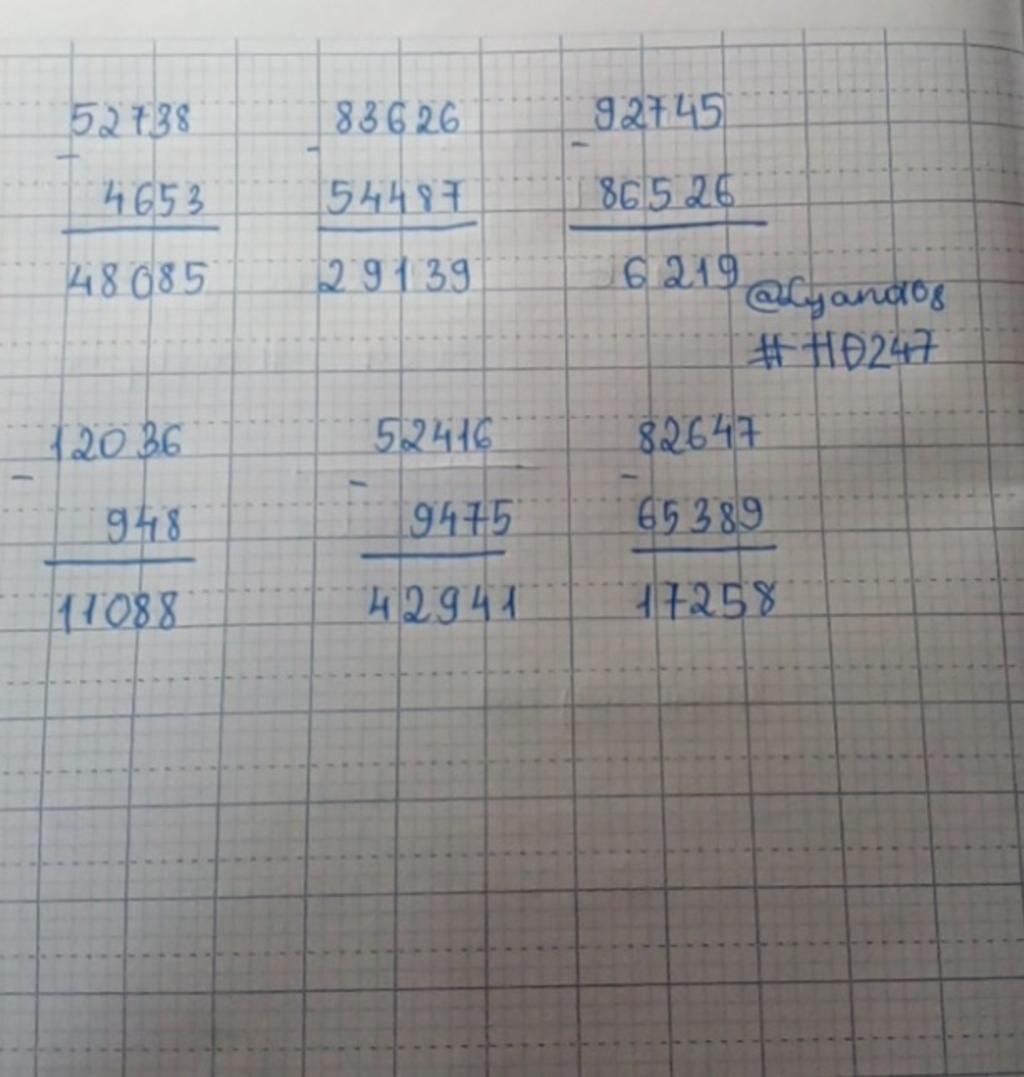 52738 83626 92745
- - -
4653 54487 86526
48085 29139 6219
@Cyand08
#HD247
12036 52416 82647
- - -
948 9475 65389
11088 42941 17258